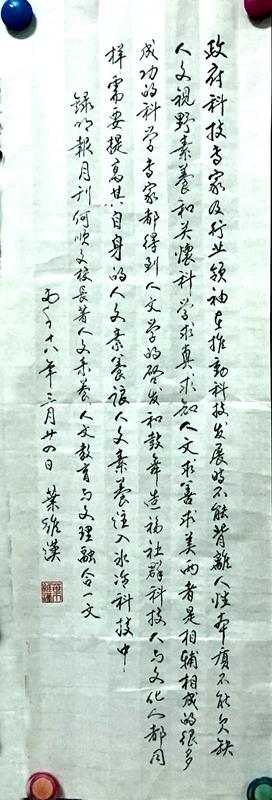 政府科技專家及行业領袖在推動科技发展時不能背離人性本质不能欠缺
人文視野素養和关懷科学求真求知人文求善求美两者是相辅相成的很多
成功的科学專家都得到人文学的启发和鼓舞造福社群科技人与文化人都同
样需要提高其自身的人文素養讓人文素養注入冰冷科技中
錄明報月刊何順文校長著人文素養人文教育与文理融合一文
十八年三月廿四日 葉維漢